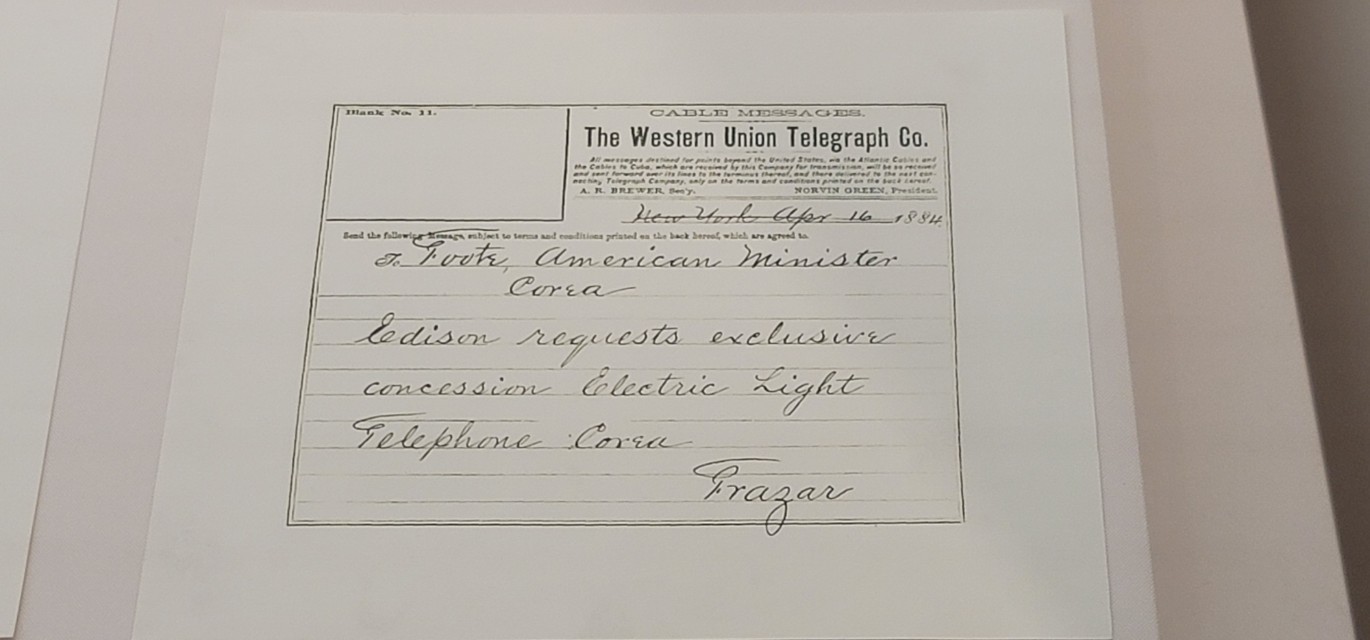 Blank No. 11.
CABLE MESSAGES.
The Western Union Telegraph Co.
All messages destined for points beyond the United States, via the Atlantic Cables and
the Cables to Cuba, which are received by this Company for transmission, will be so received
and sent forward over its lines to the terminus thereof, and there delivered to the next con-
necting Telegraph Company, only on the terms and conditions printed on the back hereof.
A. R. BREWER, Sec'y. NORVIN GREEN, President.
New York Apr 16 1884.
Send the following Message, subject to terms and conditions printed on the back hereof, which are agreed to.
To Foote, American Minister
Corea
Edison requests exclusive
concession Electric Light
Telephone Corea
Frazar